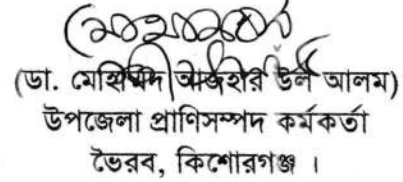 (ডা. মোহাম্মদ আজহার উল আলম)
উপজেলা প্রাণিসম্পদ কর্মকর্তা
ভৈরব, কিশোরগঞ্জ ।